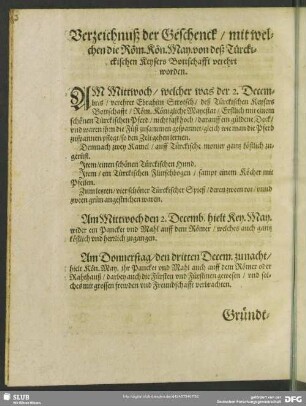 Verzeichnuß der Geschenck / mit wel-
chen die Röm. Kön. May. von deß Türcki-
ckischen Keysers Bottschafft verehrt
worden.
AM Mittwoch / welcher was der 2. Decem-
bris / verehrte Ebrahim deß Türckischen Keysers
Bottschafft / Röm. Königliche Mayestat / Erstlich mit einem
schönen Türckischen Pferd / nicht fast hoch / darauff ein gülden Deck /
und waren ihm die Füß zusammen gespannet / gleich wie man die Pferd
Zelt gehen lernen.
Demnach zwey Kamel / auff Türckische manier gantz köstlich zu-
gericht.
Item / einen schönen Türckischen Hund.
Item / ein Türckischen Flitschbogen / sampt einem Köcher mit
Pfeilen.
Zum letzten / vier schöner Türckischer Spieß / deren zween rot / und
zween grün angestrichen waren.
Am Mittwoch den 2. Decemb. hielt Key. May.
wider ein Pancket und Mahl auff dem Römer / welches auch gantz
köstlich und herrlich zugangen.
Am Donnerstag / den dritten Decem. zu nacht /
hielt Kön. May. ihr Pancket und Mahl auch auff dem Römer oder
Rahthauß / darbey auch die Fürsten und Fürstinnen gewesen / und sol-
ches mit grossen freuwden und Freundtschafft verbrachten.
Gründt-
SLUB
Wir führen Wissen.
gefördert von der
Deutschen Forschungsgemeinschaft
DFG